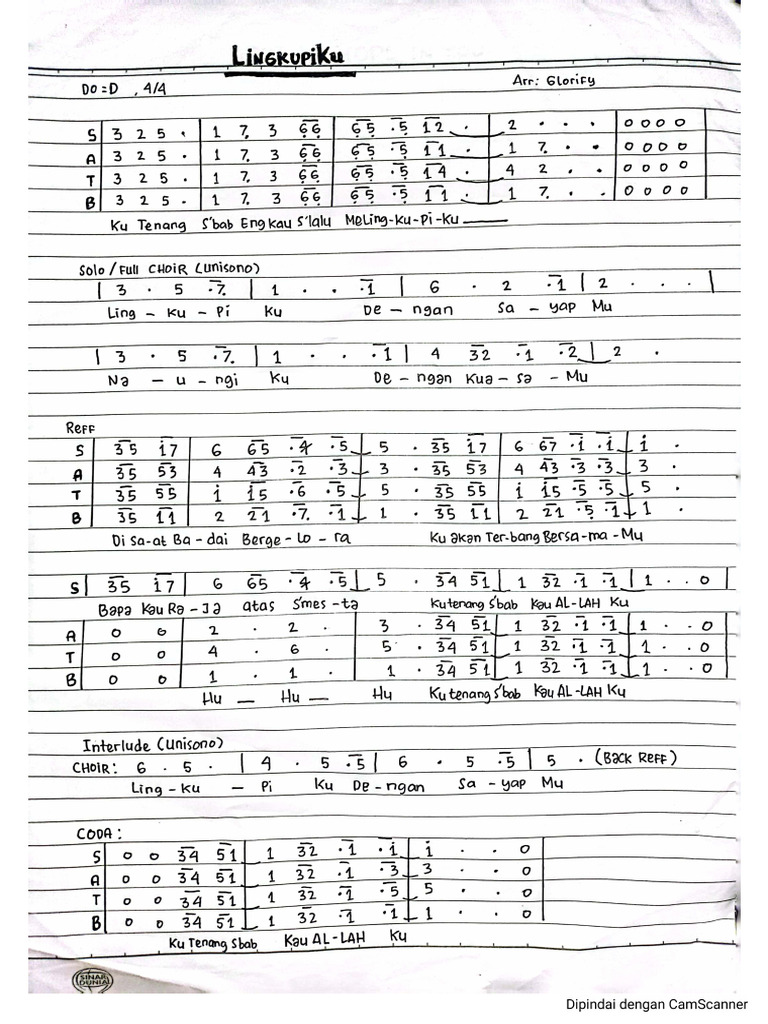 LINGKUPIKU
DO=D, 4/4 Arr: Glorify
S | 3 2 5 . | 1 7̣ 3 6̣̅6̣̅ | 6̣̅5̣̅ .̅5̣̅ 1̅2̅ . | 2 . . . | 0 0 0 0
A | 3 2 5 . | 1 7̣ 3 6̣̅6̣̅ | 6̣̅5̣̅ .̅5̣̅ 1̅1̅ . | 1 7̣ . . | 0 0 0 0
T | 3 2 5 . | 1 7̣ 3 6̣̅6̣̅ | 6̣̅5̣̅ .̅5̣̅ 1̅4̅ . | 4 2 . . | 0 0 0 0
B | 3 2 5 . | 1 7̣ 3 6̣̅6̣̅ | 6̣̅5̣̅ .̅5̣̅ 1̅1̅ . | 1 7̣ . . | 0 0 0 0
Ku Tenang S'bab Engkau S'lalu Meling-ku-pi-ku
Solo / Full CHOIR (Unisono)
| 3 . 5 .̅7̣̅ | 1 . . .̅1̅ | 6 . 2 .̅1̅ | 2 . . . |
Ling - ku - pi Ku De - ngan Sa - yap Mu
| 3 . 5 .̅7̣̅ | 1 . . .̅1̅ | 4 3̅2̅ .̅1̅ .̅2̅ | 2 .
Na - u - ngi Ku De - ngan Kua - sa - Mu
Reff
S | 3̅5̅ i̅7̅ | 6 6̅5̅ .̅4̅ .̅5̅ | 5 . 3̅5̅ i̅7̅ | 6 6̅7̅ .̅i̅ .̅i̅ | i .
A | 3̅5̅ 5̅3̅ | 4 4̅3̅ .̅2̅ .̅3̅ | 3 . 3̅5̅ 5̅3̅ | 4 4̅3̅ .̅3̅ .̅3̅ | 3 .
T | 3̅5̅ 5̅5̅ | i i̅5̅ .̅6̅ .̅5̅ | 5 . 3̅5̅ 5̅5̅ | i i̅5̅ .̅5̅ .̅5̅ | 5 .
B | 3̅5̅ 1̅1̅ | 2 2̅1̅ .̅7̣̅ .̅1̅ | 1 . 3̅5̅ 1̅1̅ | 2 2̅1̅ .̅5̣̅ .̅1̅ | 1 .
Di Sa-at Ba-dai Berge-lo-ra Ku akan Ter-bang Bersa-ma-Mu
S | 3̅5̅ i̅7̅ | 6 6̅5̅ .̅4̅ .̅5̅ | 5 . 3̅4̅ 5̅1̅ | 1 3̅2̅ .̅1̅ .̅1̅ | 1 . . 0
Bapa Kau Ra-Ja atas S'mes-ta Kutenang S'bab Kau AL-LAH Ku
A | 0 0 | 2 . 2 . | 3 . 3̅4̅ 5̅1̅ | 1 3̅2̅ .̅1̅ .̅1̅ | 1 . . 0
T | 0 0 | 4 . 6 . | 5 . 3̅4̅ 5̅1̅ | 1 3̅2̅ .̅1̅ .̅1̅ | 1 . . 0
B | 0 0 | 1 . 1 . | 1 . 3̅4̅ 5̅1̅ | 1 3̅2̅ .̅1̅ .̅1̅ | 1 . . 0
Hu — Hu — Hu Ku tenang S'bab Kau AL-LAH Ku
Interlude (Unisono)
CHOIR: 6 . 5 . | 4 . 5 .̅5̅ | 6 . 5 .̅5̅ | 5 . (Back Reff)
Ling - ku - Pi Ku De - ngan Sa - yap Mu
CODA :
S | 0 0 3̅4̅ 5̅1̅ | 1 3̅2̅ .̅1̅ .̅i̅ | i . . 0
A | 0 0 3̅4̅ 5̅1̅ | 1 3̅2̅ .̅1̅ .̅3̅ | 3 . . 0
T | 0 0 3̅4̅ 5̅1̅ | 1 3̅2̅ .̅1̅ .̅5̅ | 5 . . 0
B | 0 0 3̅4̅ 5̅1̅ | 1 3̅2̅ .̅1̅ .̅1̅ | 1 . . 0
Ku Tenang Sbab Kau AL-LAH Ku
SINAR DUNIA
Dipindai dengan CamScanner